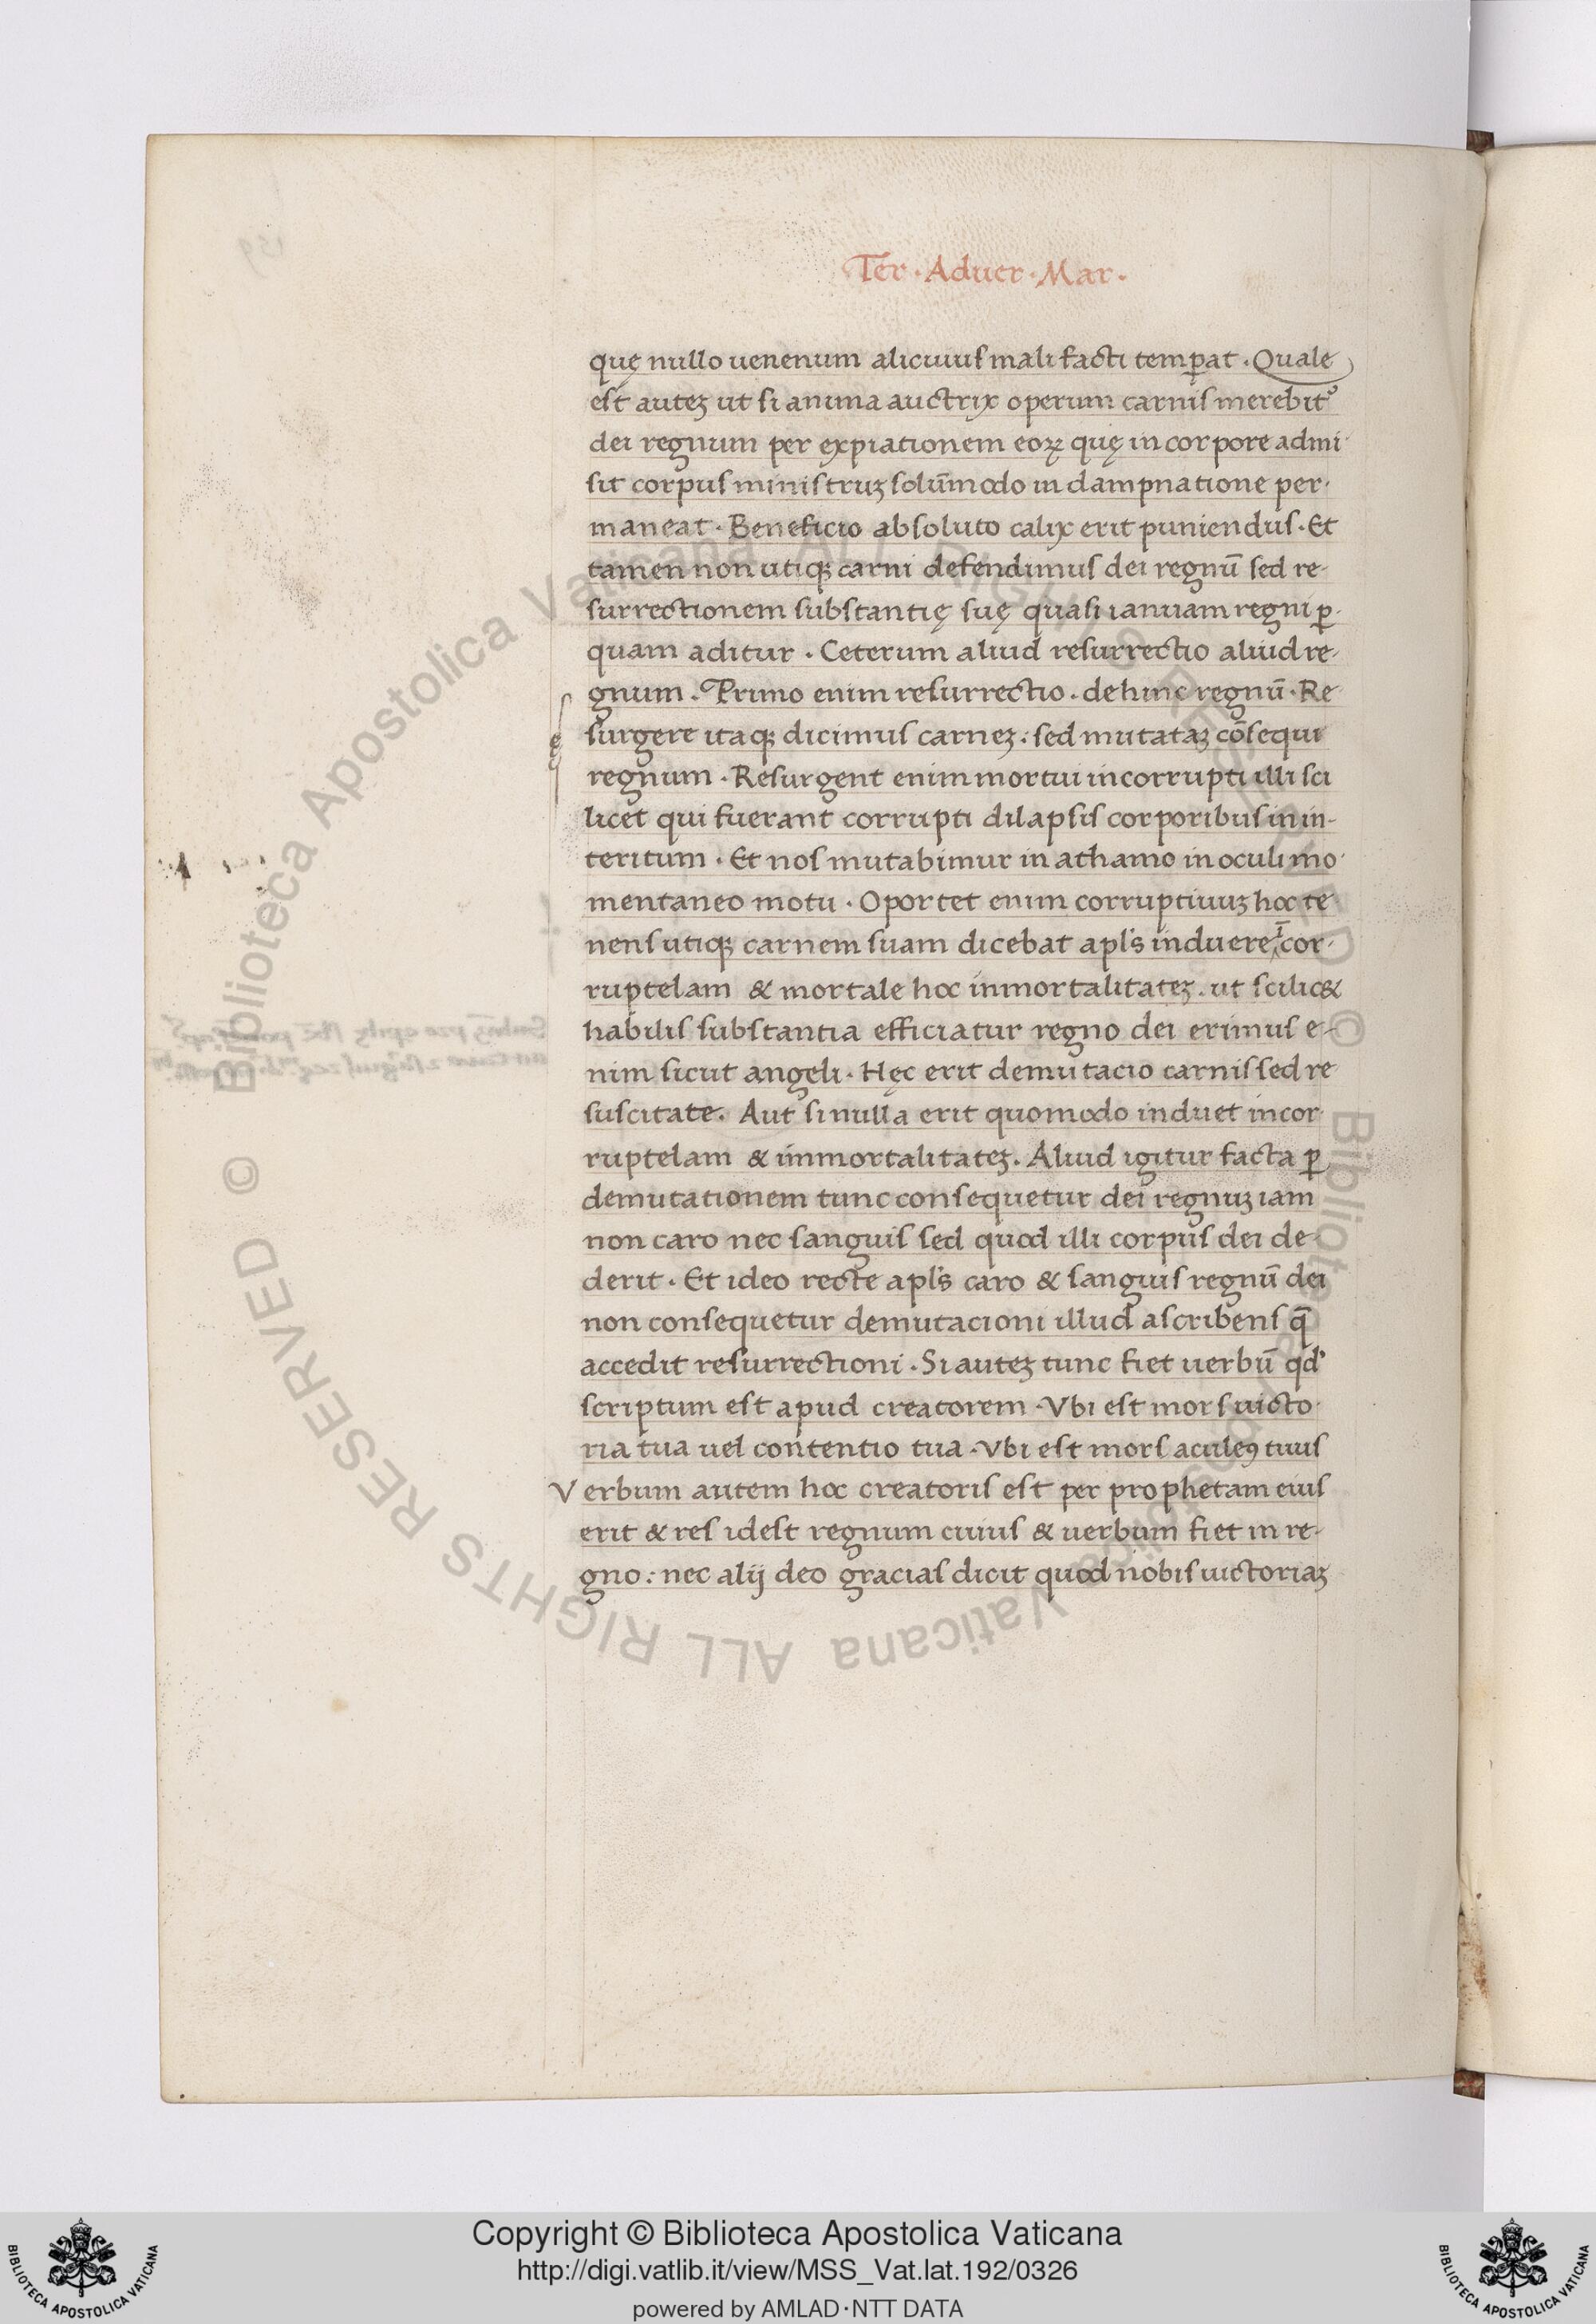 Ter · Aduer · Mar ·
quę nullo uenenum alicuius mali facti temꝑat · Quale
est auteꝫ ut si anima auctrix operum carnis merebit᷑
dei regnum per expiationem eoꝝ quę in corpore admi
sit corpus ministruꝫ solūmodo in dampnatione per-
maneat · Beneficio absoluto calix erit puniendus · Et
tamen non utiqꝫ carni defendimus dei regnū sed re-
surrectionem substantię suę quasi ianuam regni ꝑ
quam aditur · Ceterum aliud resurrectio aliud re-
gnum · Primo enim resurrectio · dehinc regnū · Re
surgere itaqꝫ dicimus carneꝫ : sed mutataꝫ cōsequi
regnum · Resurgent enim mortui incorrupti illi sci
licet qui fuerant corrupti dilapsis corporibus in in-
teritum · Et nos mutabimur in athamo in oculi mo
mentaneo motu · Oportet enim corruptiuuꝫ hoc te
nens utiqꝫ carnem suam dicebat apl's induere ī cor-
ruptelam & mortale hoc inmortalitateꝫ . ut scilic&
habilis substantia efficiatur regno dei erimus e-
nim sicut angeli · Hęc erit demutacio carnis sed re
suscitate . Aut si nulla erit quomodo induet incor
ruptelam & immortalitateꝫ . Aliud igitur facta ꝑ
demutationem tunc consequetur dei regnuꝫ iam
non caro nec sanguis sed quod illi corpus dei de-
derit · Et ideo recte apl's caro & sanguis regnū dei
non consequetur demutacioni illud ascribens q̄
accedit resurrectioni · Si auteꝫ tunc fiet uerbū qd'
scriptum est apud creatorem · Vbi est mors uicto
ria tua uel contentio tua · Vbi est mors aculeꝰ tuus
Verbum autem hoc creatoris est per prophetam eius
erit & res idest regnum cuius & uerbum fiet in re-
gno : nec alij deo gracias dicit quod nobis uictoriaꝫ
© Biblioteca Apostolica Vaticana ALL RIGHTS RESERVED
© Biblioteca Apostolica Vaticana ALL RIGHTS RESERVED
Copyright © Biblioteca Apostolica Vaticana
http://digi.vatlib.it/view/MSS_Vat.lat.192/0326
powered by AMLAD·NTT DATA
BIBLIOTECA APOSTOLICA VATICANA
BIBLIOTECA APOSTOLICA VATICANA